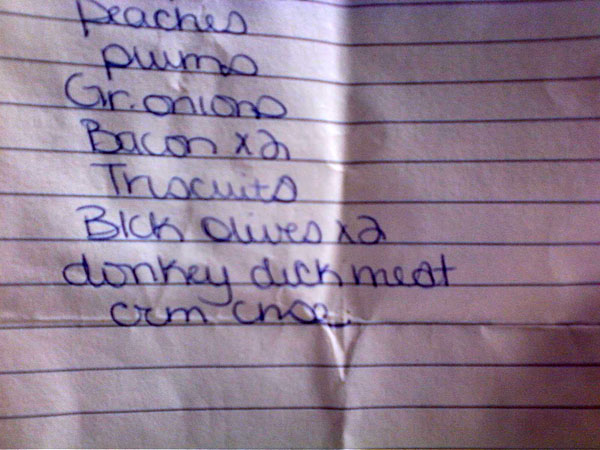 peaches
plums
Gr. onions
Bacon x2
Triscuits
Blck olives x2
donkey dick meat
crm. chse.